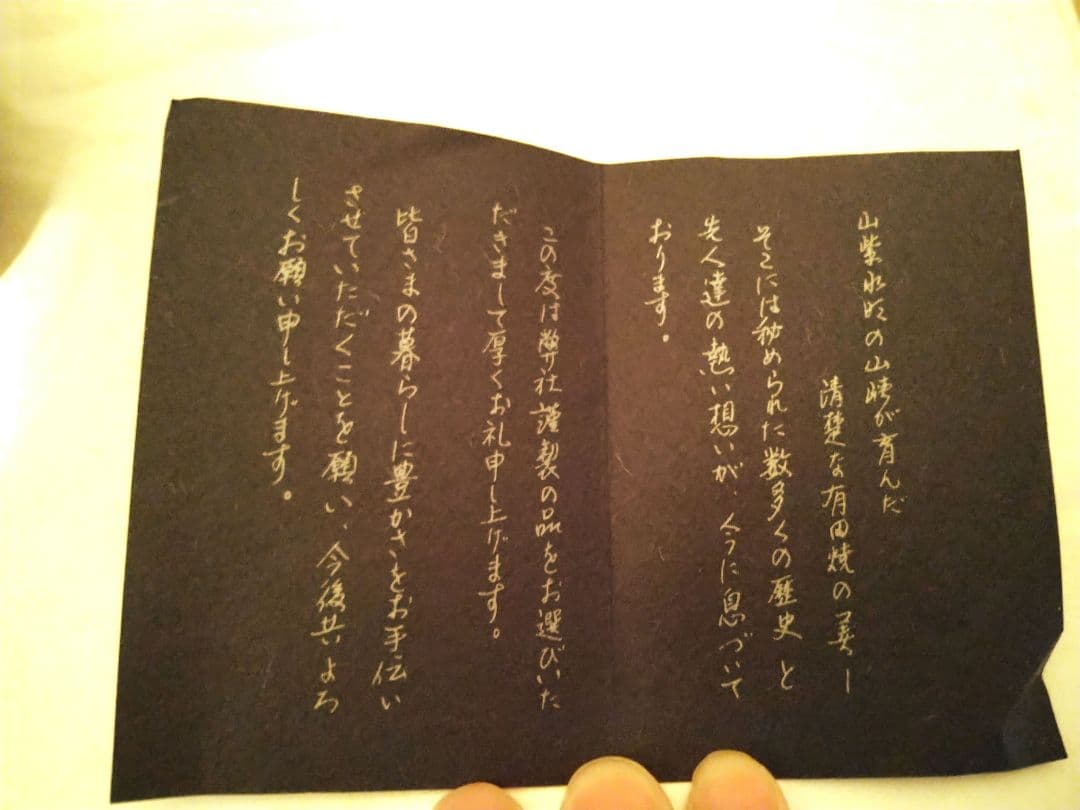 山紫水明の山峡が育んだ
清楚な有田焼の美ー
そこには秘められた数多くの歴史と
先人達の熱い想いが、今に息づいて
おります。
この度は弊社謹製の品をお選びいた
だきまして厚くお礼申し上げます。
皆さまの暮らしに豊かさをお手伝い
させていただくことを願い、今後共よろ
しくお願い申し上げます。